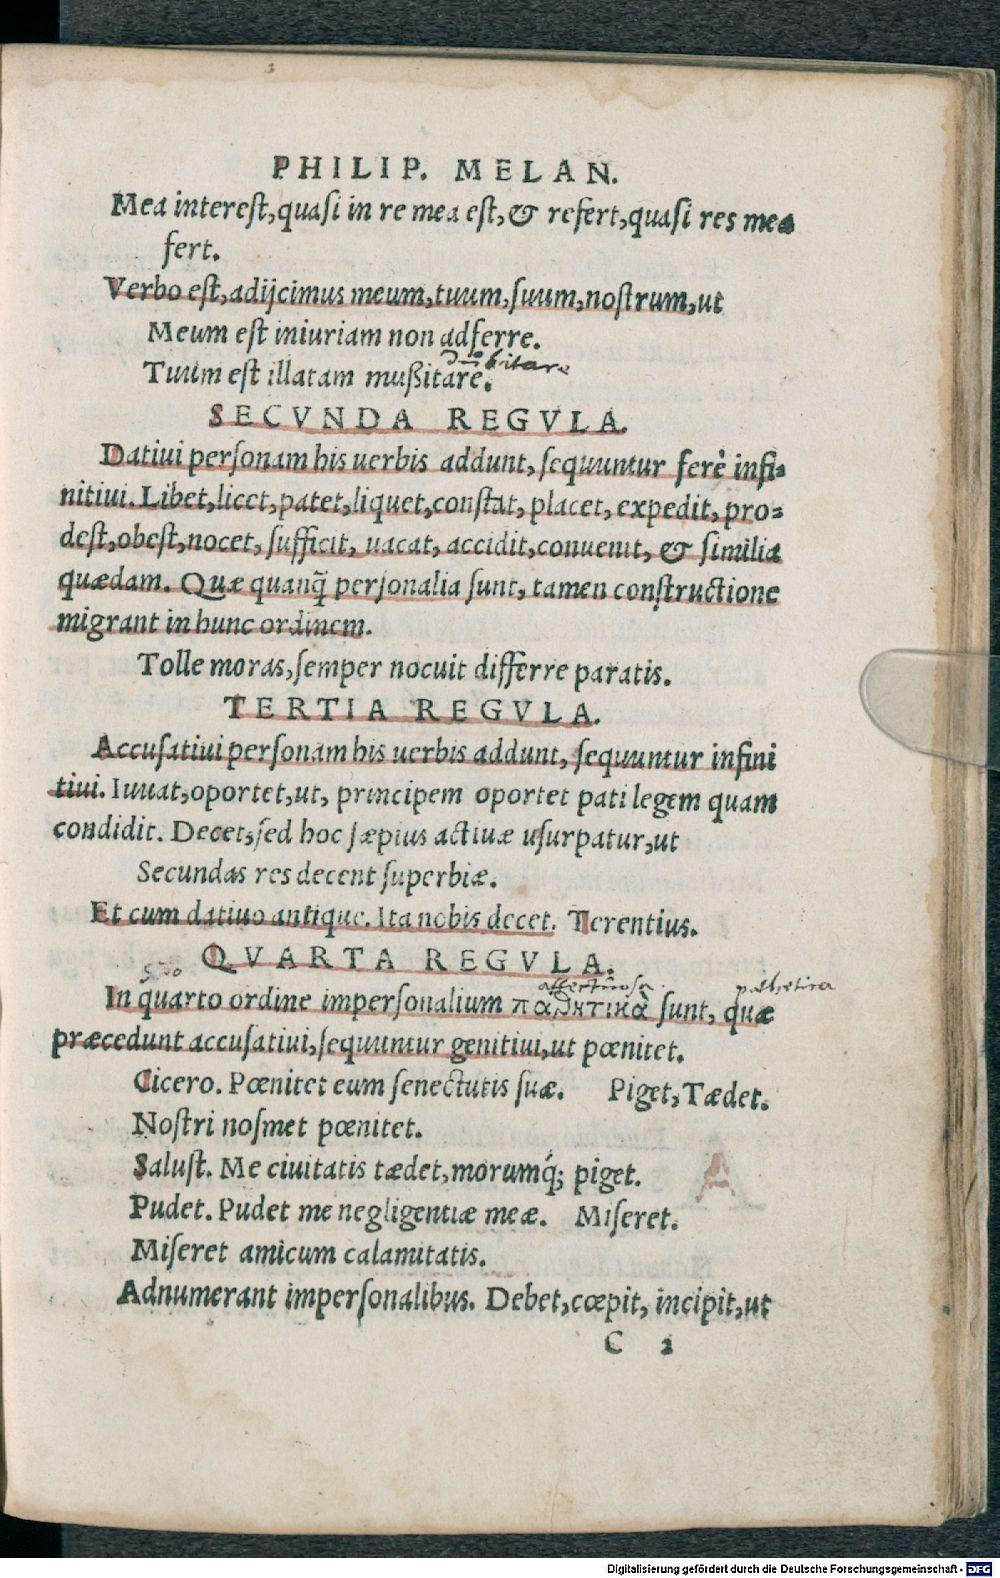 PHILIP. MELAN.
Mea interest, quasi in re mea est, & refert, quasi res mea
fert.
Verbo est, adijcimus meum, tuum, suum, nostrum, ut
Meum est iniuriam non adferre.
Tuum est illatam mußitare.
SECVNDA REGVLA.
Datiui personam his uerbis addunt, sequuntur ferè infi-
nitiui. Libet, licet, patet, liquet, constat, placet, expedit, pro-
dest, obest, nocet, sufficit, uacat, accidit, conuenit, & similia
quædam. Quæ quanq̃ personalia sunt, tamen constructione
migrant in hunc ordinem.
Tolle moras, semper nocuit differre paratis.
TERTIA REGVLA.
Accusatiui personam his uerbis addunt, sequuntur infini
tiui. Iuuat, oportet, ut, principem oportet pati legem quam
condidit. Decet, sed hoc sæpius actiuæ usurpatur, ut
Secundas res decent superbiæ.
Et cum datiuo antique. Ita nobis decet. Terentius.
QVARTA REGVLA.
affectuosa. pathetica
In quarto ordine impersonalium παθητικὰ sunt, quæ
præcedunt accusatiui, sequuntur genitiui, ut pœnitet.
Cicero. Pœnitet eum senectutis suæ. Piget, Tædet.
Nostri nosmet pœnitet.
Salust. Me ciuitatis tædet, morumq́; piget.
Pudet. Pudet me negligentiæ meæ. Miseret.
Miseret amicum calamitatis.
Adnumerant impersonalibus. Debet, cœpit, incipit, ut
C 2
Digitalisierung gefördert durch die Deutsche Forschungsgemeinschaft - DFG